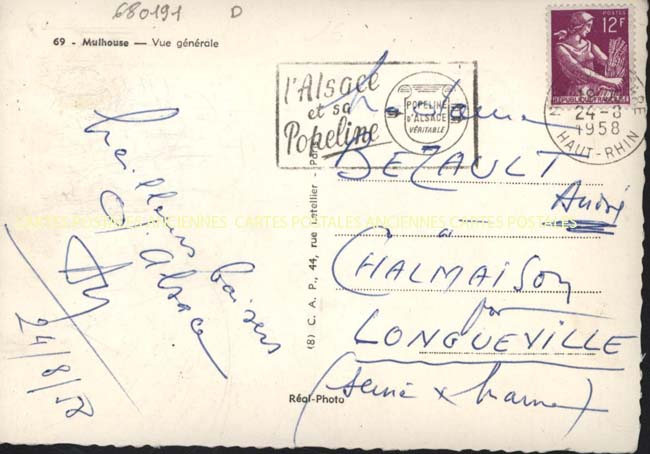 680191 D
69 - Mulhouse — Vue générale
Meilleurs baisers
d'Alsace
24/8/58
l'Alsace
et sa
Popeline
POPELINE
D'ALSACE
VÉRITABLE
POSTES
12F
REPUBLIQUE FRANÇAISE
24-8
1958
HAUT-RHIN
Madame
BEZAULT
André
à
CHALMAISON
par
LONGUEVILLE
(Seine & Marne)
(8) C. A. P., 44, rue Letellier - Paris
Réal-Photo
CARTES POSTALES ANCIENNES CARTES POSTALES ANCIENNES CARTES POSTALES